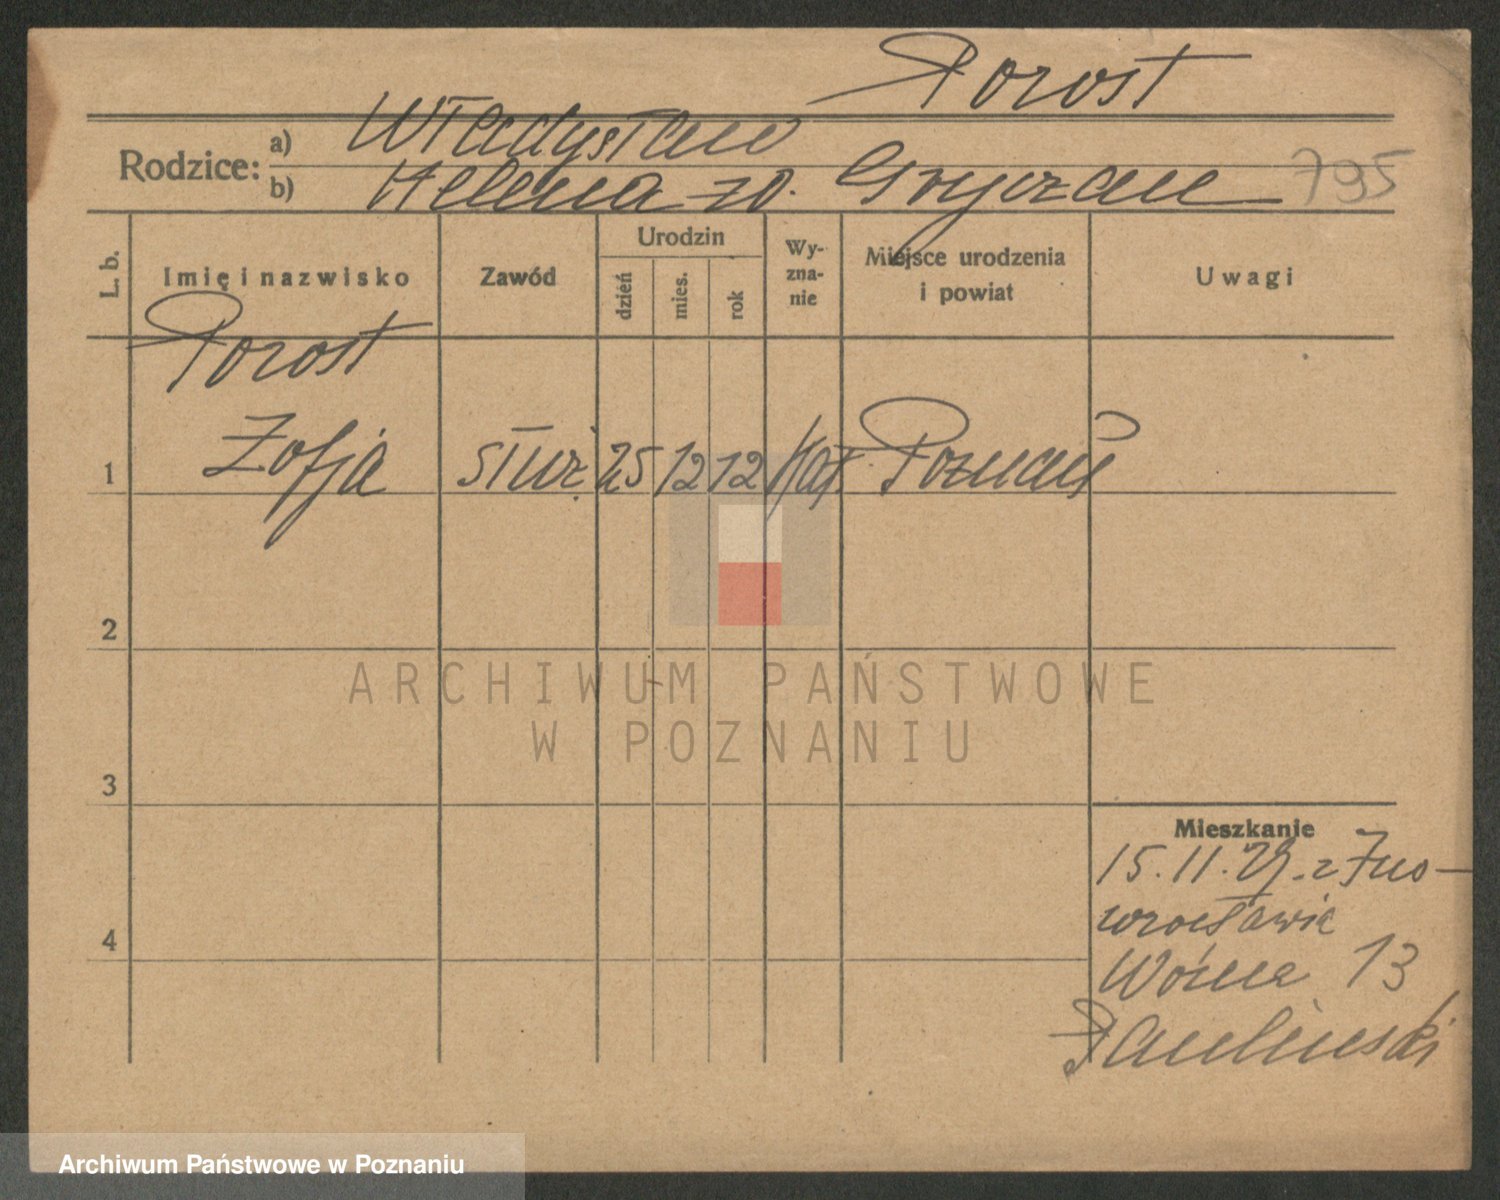 Porost
Rodzice:
a) Władysław
b) Helena zd. Gryczan 795
L. b.
Imię i nazwisko
Zawód
Urodzin
dzień
mies.
rok
Wy-
zna-
nie
Miejsce urodzenia
i powiat
Uwagi
Porost
1 Zofja służ. 25 12 12 kat. Poznań
2
3
4
Mieszkanie
15.11.29. z Ino-
wrocławia
Wóźna 13
Paulinski
ARCHIWUM PAŃSTWOWE
W POZNANIU
Archiwum Państwowe w Poznaniu